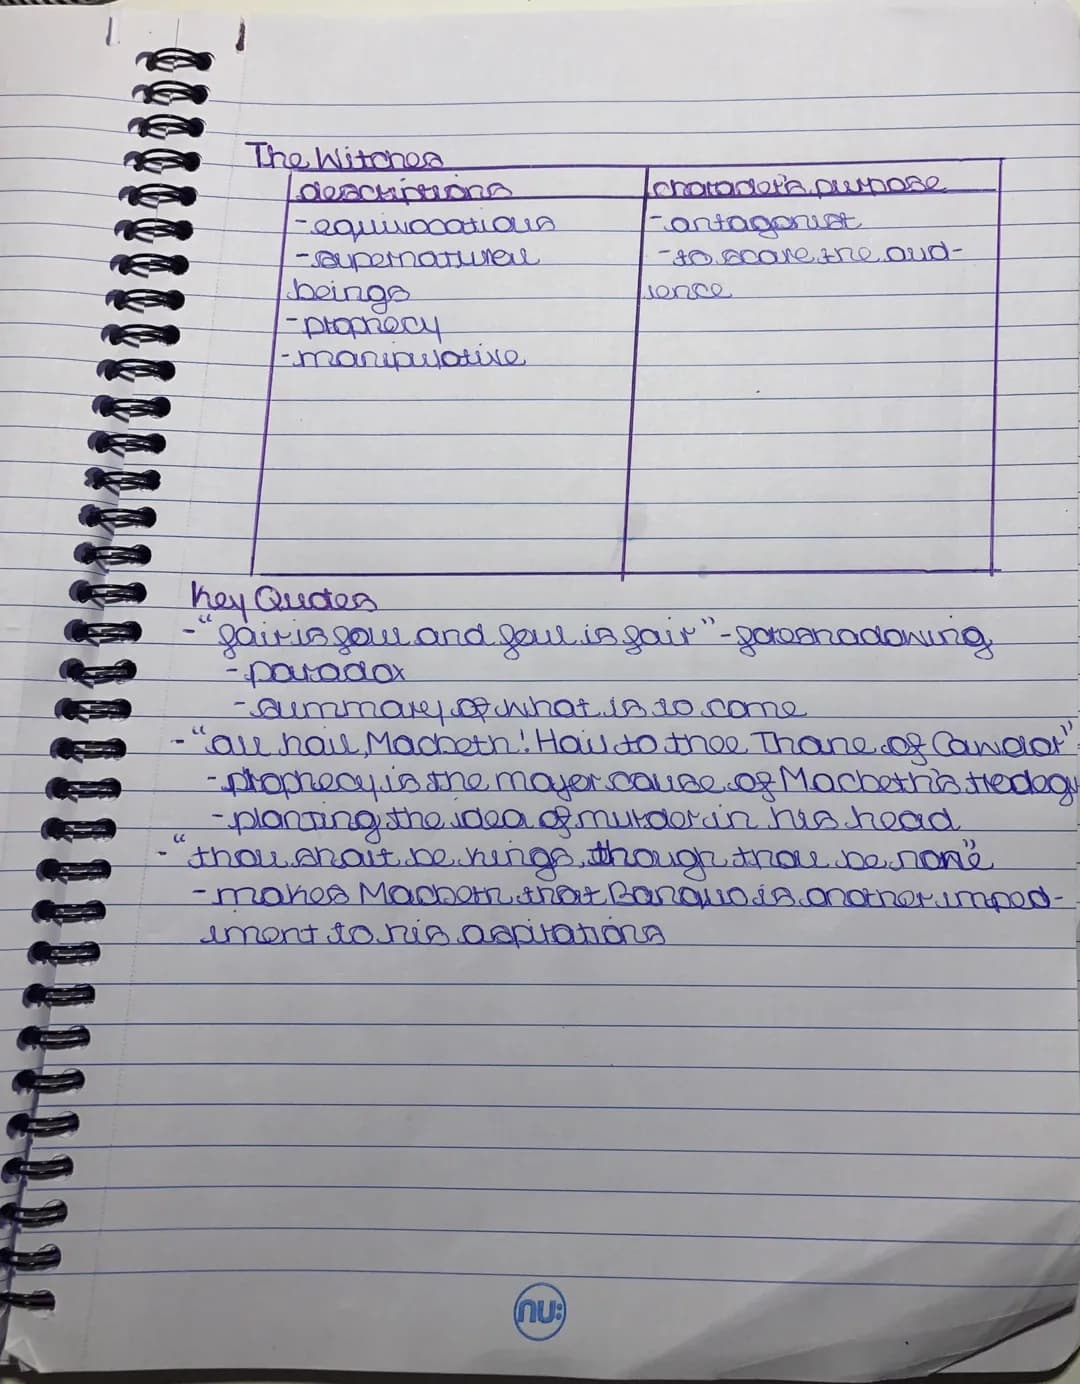 The Witches
descriptions
character's purpose
-equivocatious
-supernatural
beings
-prophecy
-manipulative
-antagonist
-to scare the aud-
ience
Key Quotes
-"fair is foul and foul is fair"-foreshadowing
-paradox
-summary of what is to come
-"all hail, Macbeth! Hail to thee Thane of Cawdor"
-prophecy is the major cause of Macbeth's tredogy
-planting the idea of murder in his head
-"thou shalt be kings, though thou be none"
-makes Macbeth that Banquo is another imped-
iment to his aspirations
nu: